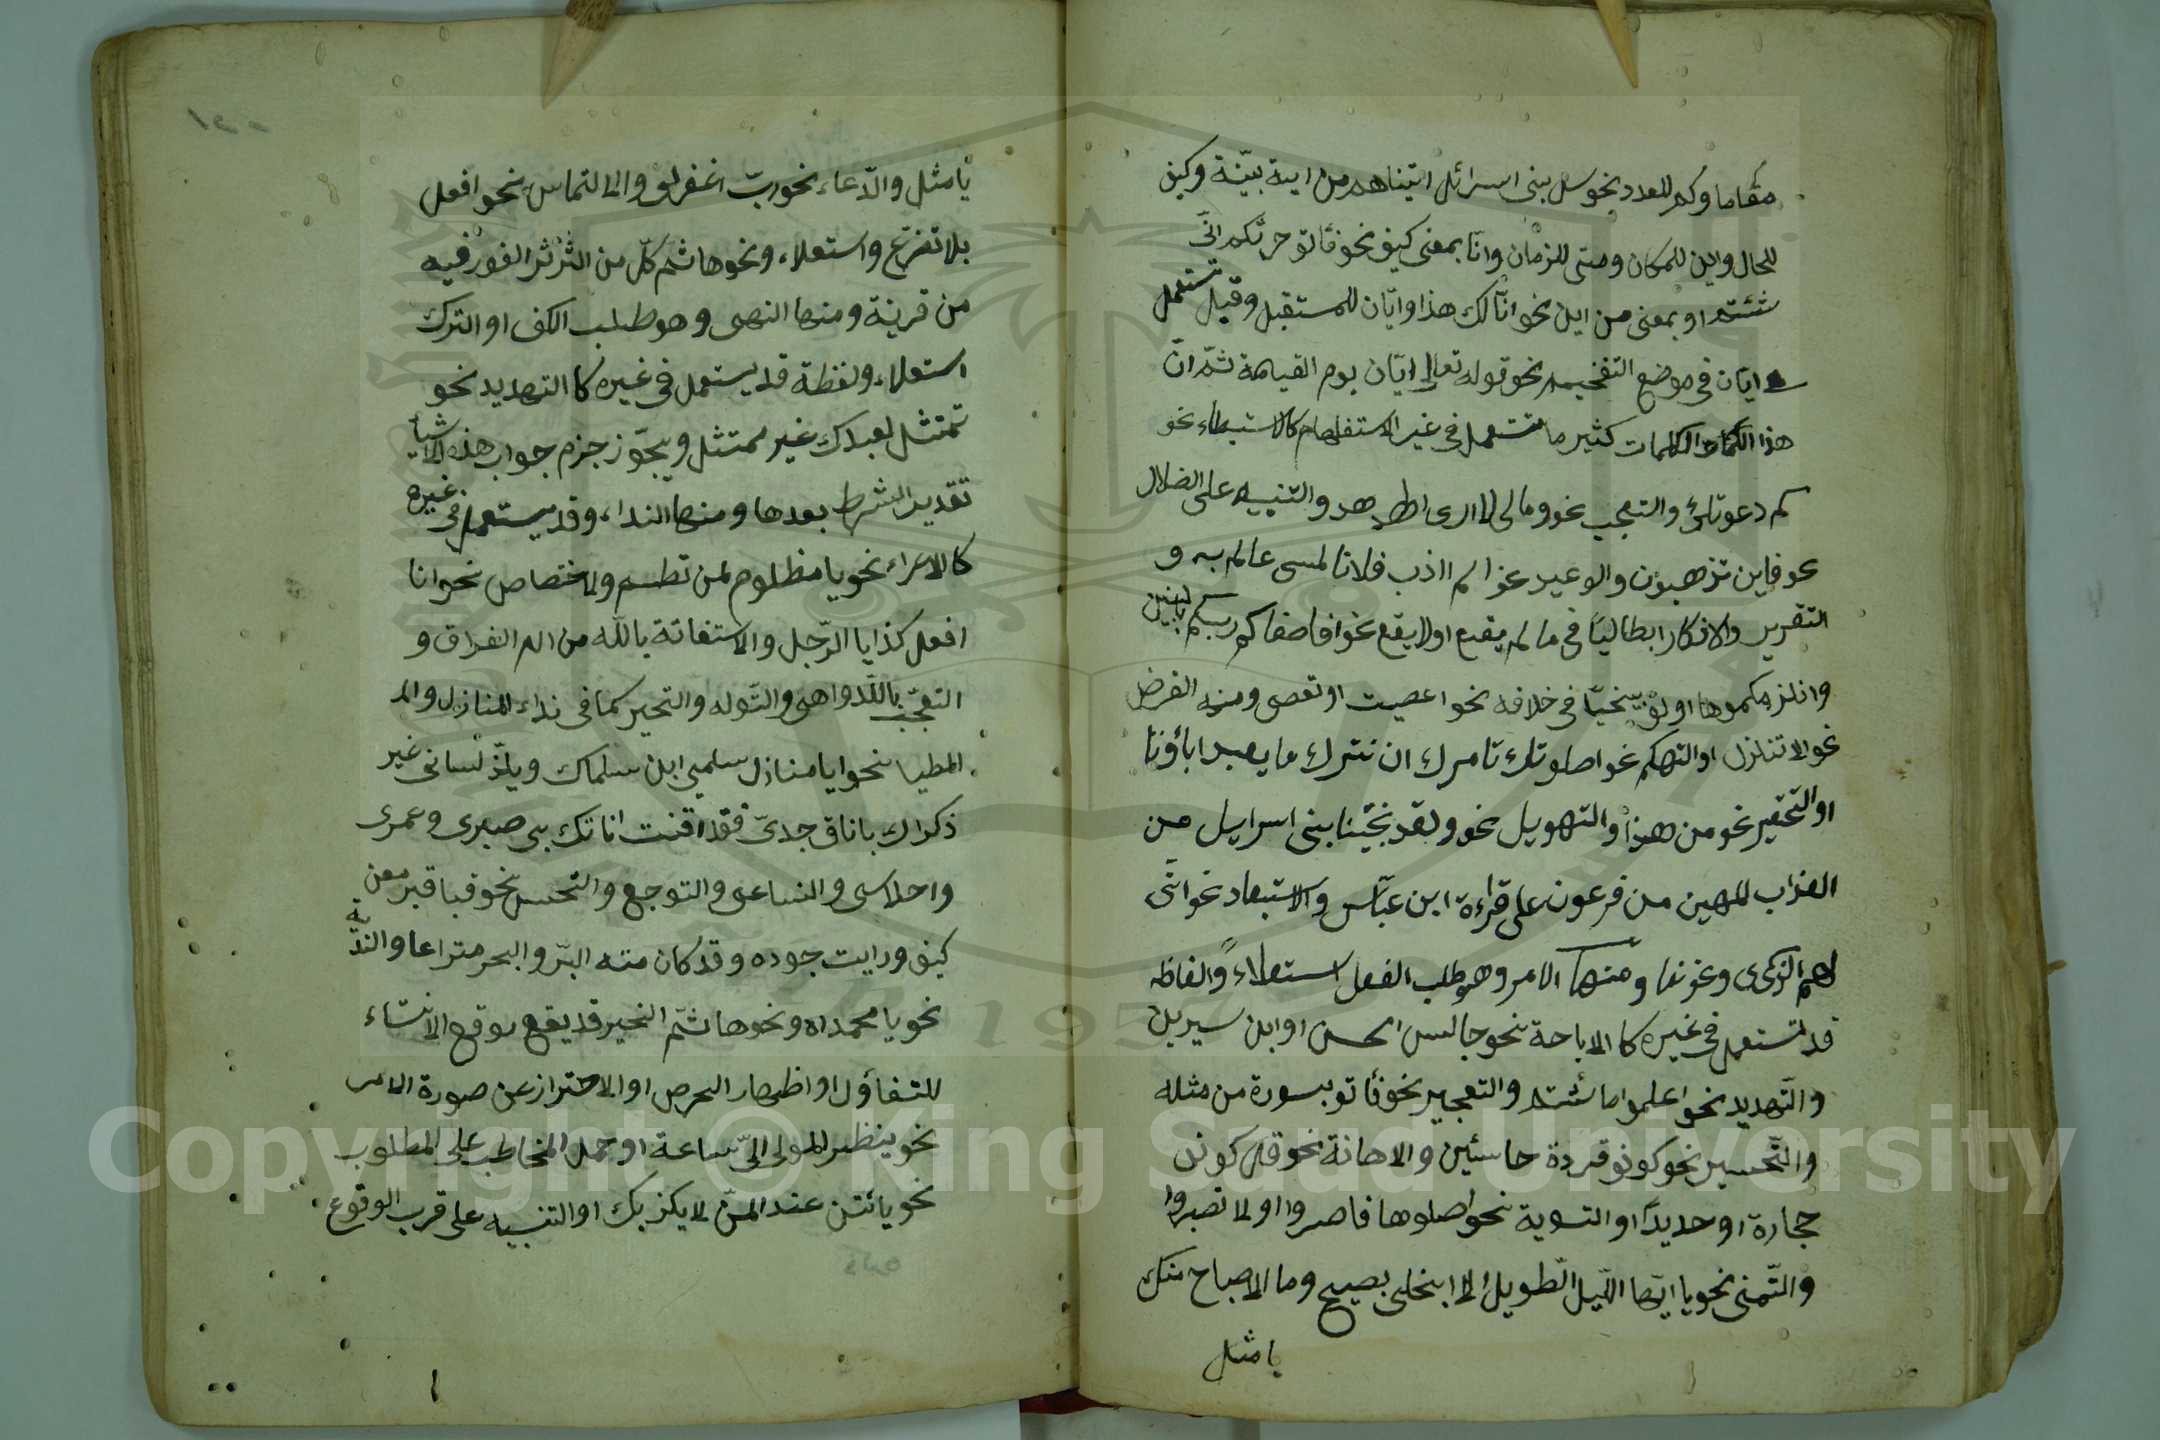 مقاما وكم للعدد نحو سل بنى اسرائل اتيناهم من اية بيّنة وكيف
للحال واين للمكان ومتى للزمان وانّا بمعنى كيف نحو فاتو حرثكم انّى
شئتم او بمعنى من اين نحو انّا لك هذا وايّان للمستقبل وقيل تستعمل
ايّان فى موضع التفخيم نحو قوله تعالى ايّان يوم القيامة ثمّ انّ
هذا الكلمات الكلمات كثير ما تستعمل فى غير الاستفهام كالاستبطاء نحو
كم دعوتك والتعجب نحو ومالى لا ارى الهدهد والتنبيه على الضلال
نحو فاين تذهبون والوعيد نحو الم ااذب فلانا لمسى عالم به و
التقرير والانكار ابطاليّا فى ما لم يقع او لا يقع نحو افاصفاكم ربكم بالبنين
وانلزمكموها او توبيخيّا فى خلافه نحو اعصيت او تعصى ومنه الغرض
نحو الا تنازل او التهكم نحو اصلوتك تامرك ان نترك ما يعبد اباؤنا
او التحقير نحو من هذا والتهويل نحو ولقد نجّينا بنى اسرايل من
العذاب المهين من فرعون على قراءة ابن عبّاس والاستبعاد نحو انّى
لهم الذكرى ونحو نها ومنها الامر وهو طلب الفعل استعلاءً والفاظه
قد تستعمل فى غيره كالاباحة نحو جالس الحسن او ابن سيرين
والتّهديد نحو اعلموا ما شئتم والتعجيز نحو فأتو بسورة من مثله
والتّحسير نحو كونو قردة خاسئين والاهانة نحو قل كونو
حجارة او حديدًا والتسوية نحو اصلوها فاصبروا او لا تصبروا
والتّمنى نحو يا ايّها اللّيل الطويل الا انجلى بصبح وما الاصباح منك
بامثل
يامثل والدّعاء نحو ربّ اغفر لى والالتماس نحو افعل
بلا تضرّع واستعلاء ونحوها ثم كلّ من الفور فيه
من قرينة ومنها النهى وهو طلب الكف او الترك
استعلاء ولفظة قد يستعمل فى غيره كا التهديد نحو
تمتثل لعبدك غير ممتثل ويجّوز جزم جواب هذه الاشياء
تقدير الشرط بعدها ومنها النداء وقد يستعمل فى غيره
كالاغراء نحو يا مظلوم لمن تظلم والاختصاص نحو انا
افعل كذا يا الرّجل والاستغاثة يا للّه من الم الفراق و
التعجّب يا للّدواهى والتّوله والتحير كما فى نداء المنازل والـ
المطيا نحو ايا منازل سلمى اين سلماك ويلذ لسانى غير
ذكراك يا ناق جدىّ فقد افنت اناتك بى صبرى وعمرى
واحلاسى وانساعى والتوجع والتحسر نحو فيا قبر معن
كيف واريت جوده وقد كان منه البرّ والبحر مترعا والندبة
نحو يا محمداه ونحوها ثمّ الخبر قد يقع موقع الانشاء
للتفاؤل او اظهار الحرص او الاحتراز عن صورة الامر
نحو ينظر المولى الىّ ساعة او حمل المخاطب على المطلوب
نحو يأتى عند المنّ لا يكذبك او التنبيه على قرب الوقوع
Copyright © King Saud University
1957